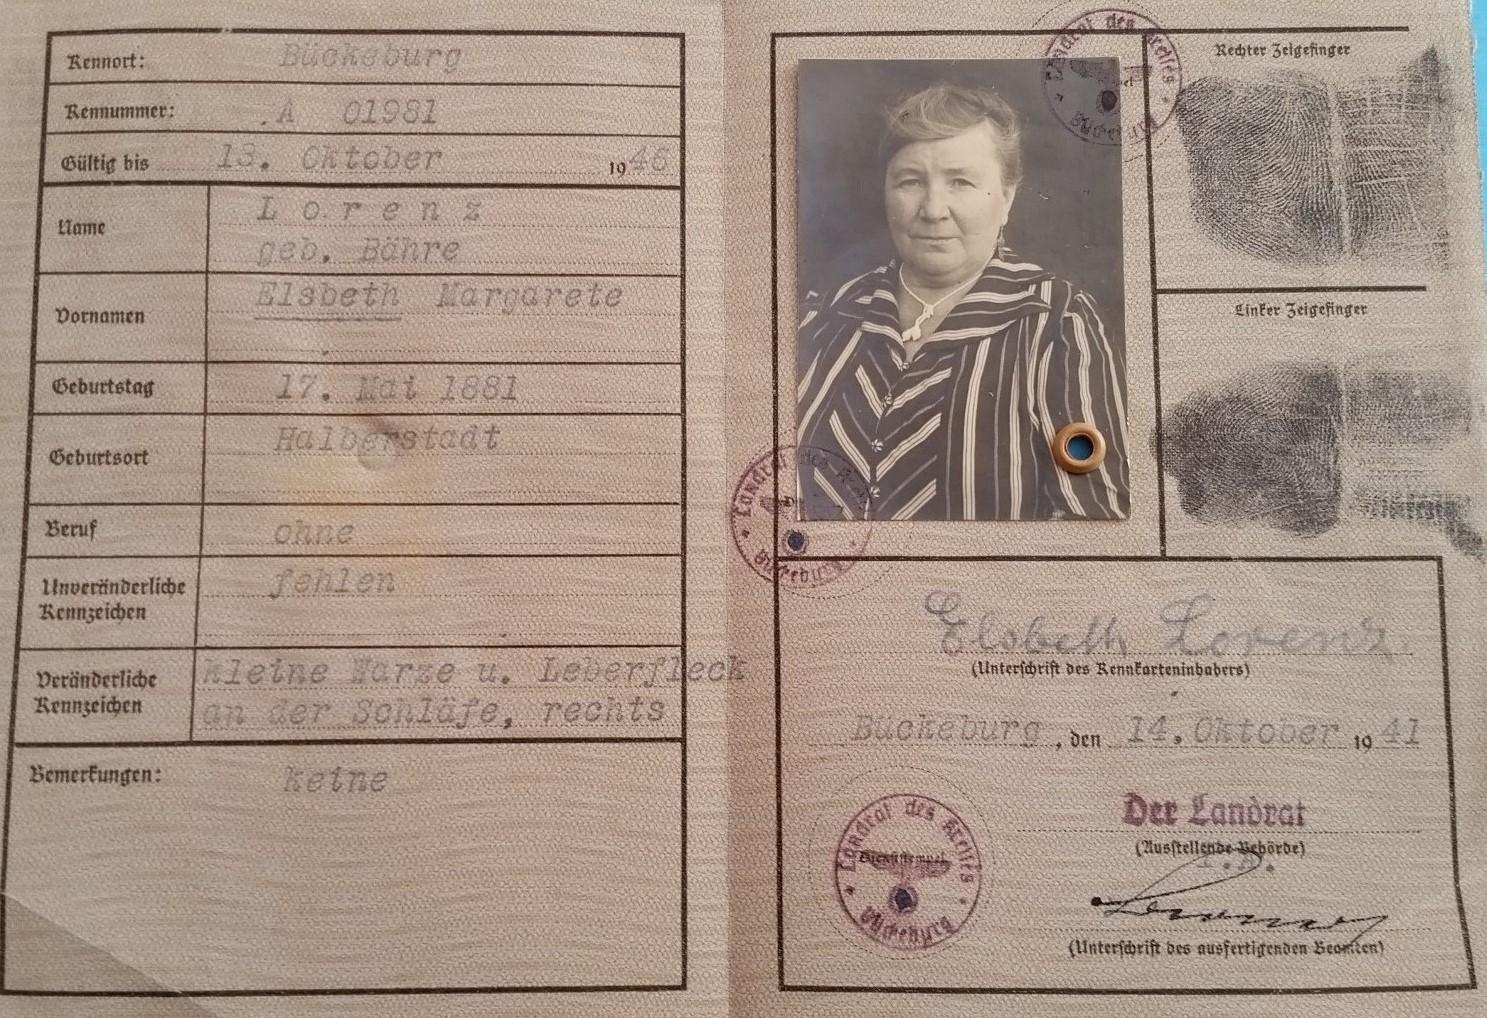 Kennort: Bückeburg
Kennummer: A 01981
Gültig bis 13. Oktober 1946
Name Lorenz
geb. Bähre
Vornamen Elsbeth Margarete
Geburtstag 17. Mai 1881
Geburtsort Halberstadt
Beruf ohne
Unveränderliche Kennzeichen fehlen
Veränderliche kleine Warze u. Leberfleck
Kennzeichen an der Schläfe, rechts
Bemerkungen: keine
Landrat des Kreises Bückeburg
Rechter Zeigefinger
Linker Zeigefinger
Landrat des Kreises Bückeburg
Elsbeth Lorenz
(Unterschrift des Kennkarteninhabers)
Bückeburg, den 14. Oktober 1941
Der Landrat
(Ausstellende Behörde)
Landrat des Kreises Bückeburg
Dienststempel
(Unterschrift des ausfertigenden Beamten)